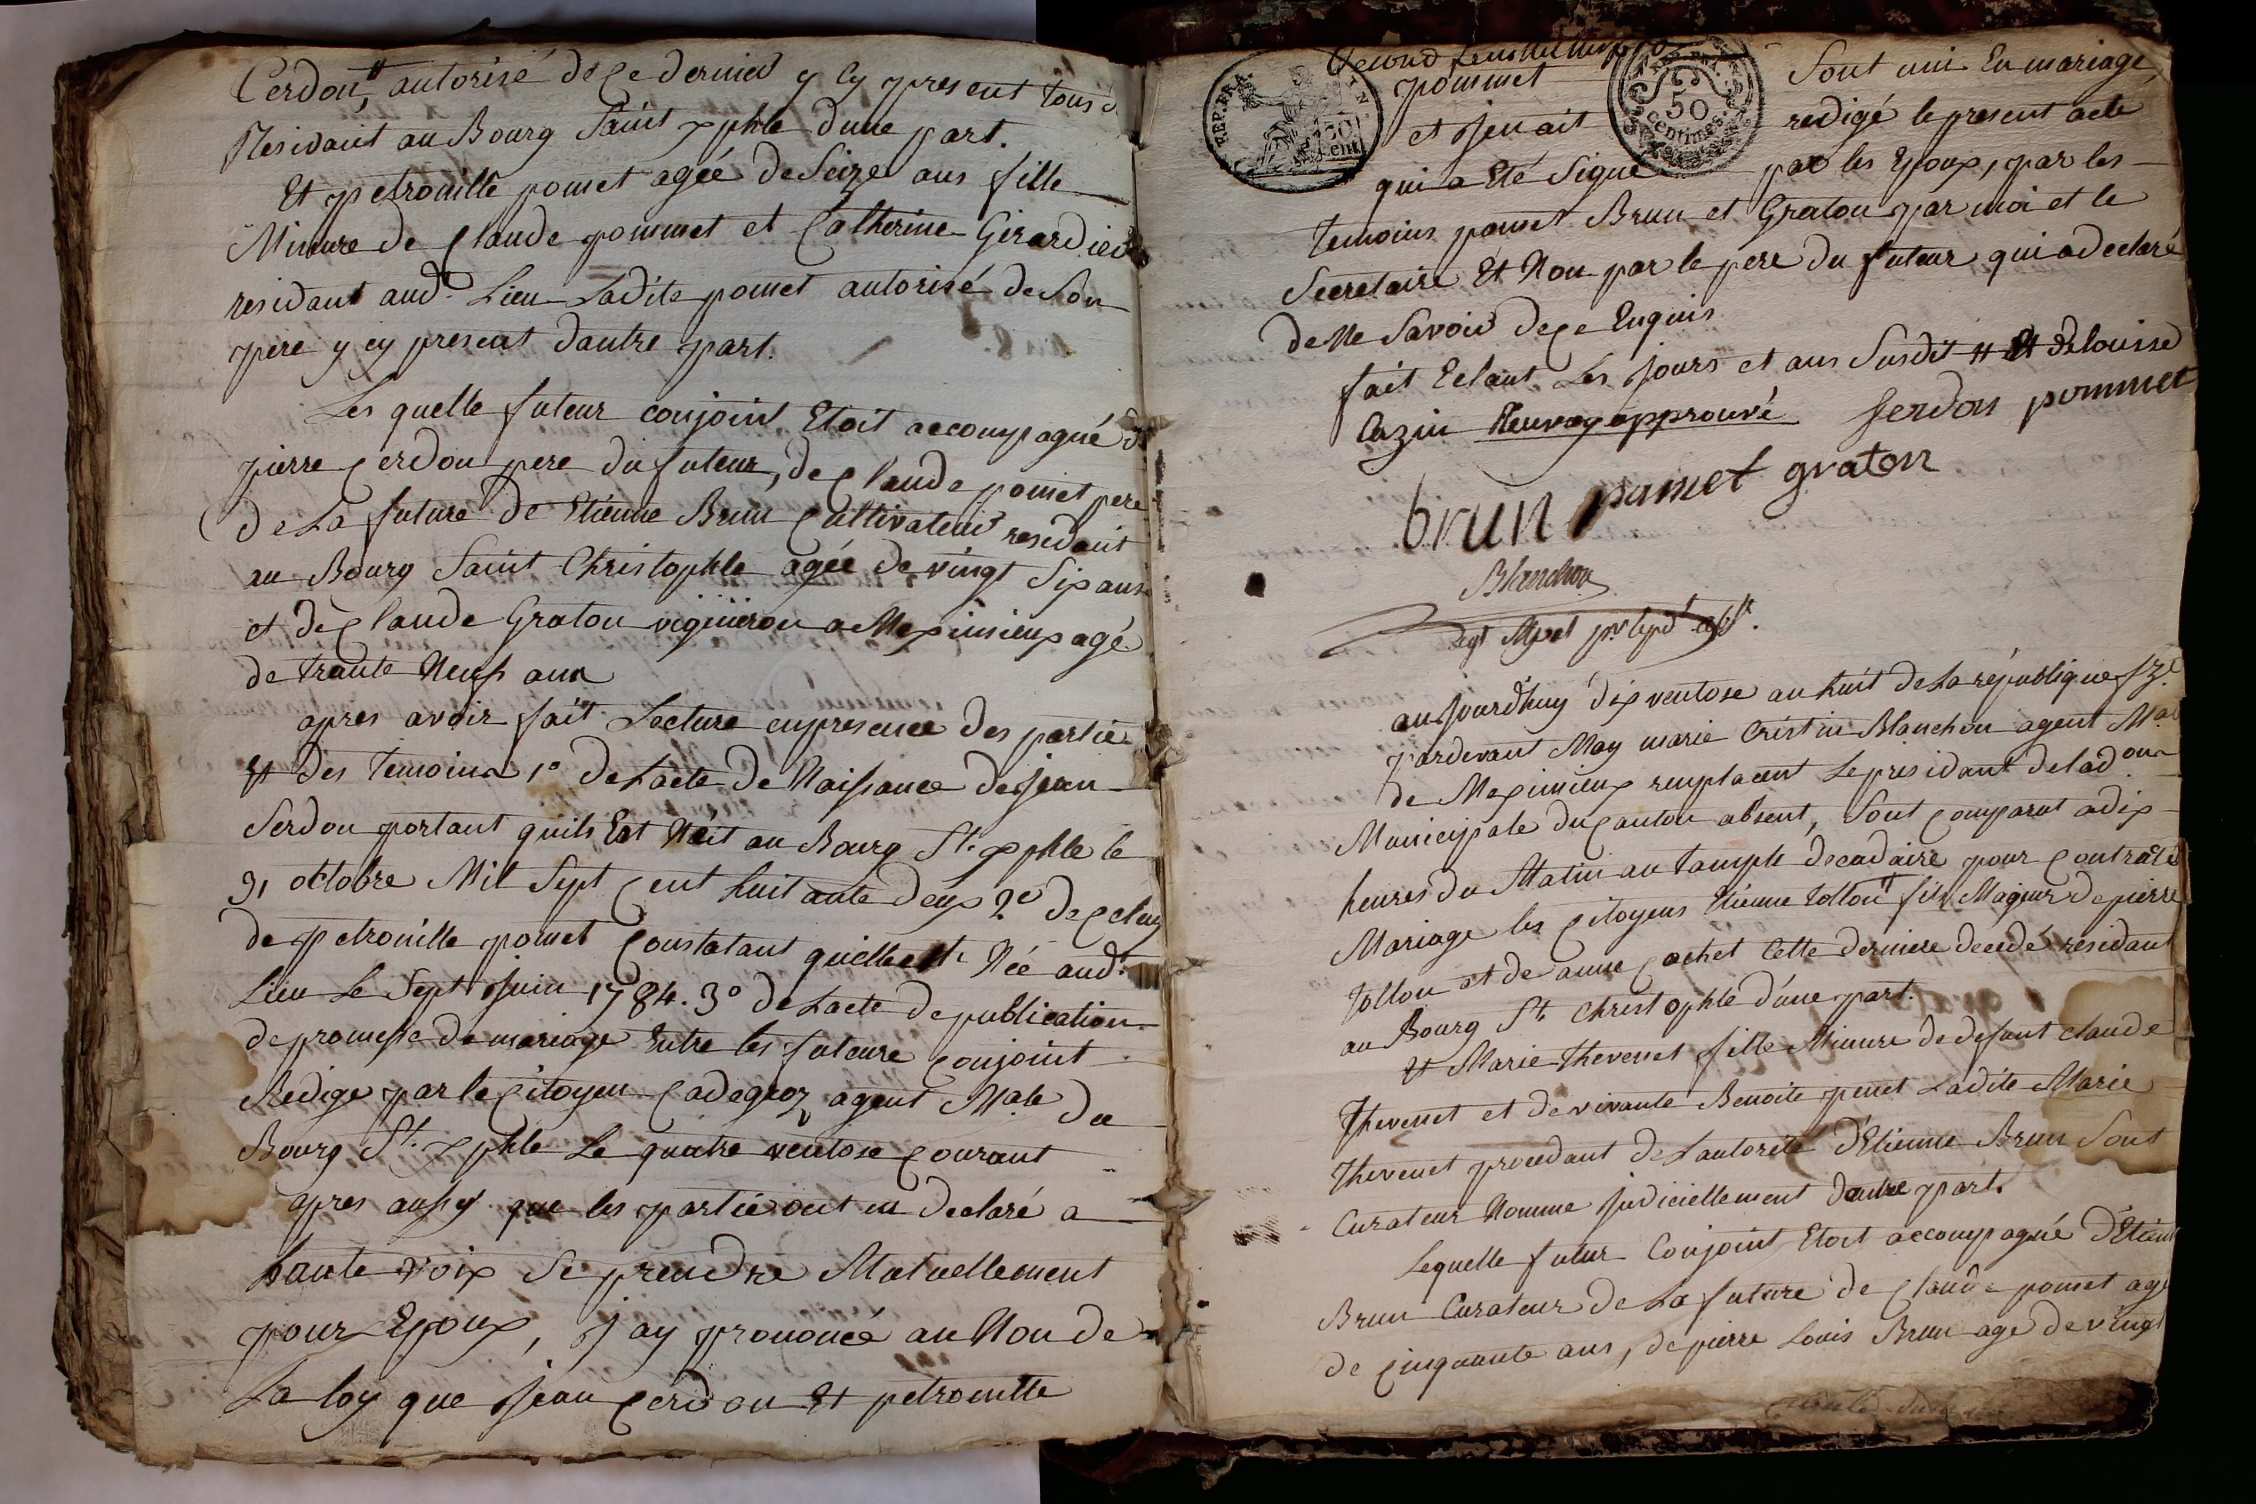 Cerdon # autorisé de Ce dernier y Cy present tous
Residant au Bourg Saint xphle dune part.
Et petronille pomet agée de Seize ans fille
Mineure de Claude pommet et Catherine Girardier
residant aud. Lieu Ladite pomet autorisé de Son
pere y cy present dautre part.
Les quelle futeur conjoint Etoit accompagné de
pierre Cerdon pere du futeur, de Claude pomet pere
de La future de Etienne Brun Cultivateur residant
au Bourg Saint Christophle agée de vingt Six ans
et de Claude Graton vigneron a Meximieux agé
de trante Neuf ans
apres avoir fait Lecture en presence des partie
Et des temoins 1° de Lacte de Naissance de jean
Serdon portant quils Est Nait au Bourg St. xphle le
31 octobre Mil Sept Cent huitante deux 2° de Celuy
de petronille pomet Constatant quelle est Née aud.
Lieu Le Sept juin 1784. 3° de Lacte de publication
de promesse de mariage Entre les futeure conjoint
Redige par le Citoyen Cadegroz agent Male du
Bourg St. xphle Le quatre ventose Courant
apres aussy que les partie ont eu declaré a
haute voix Se prendre Mutuellement
pour Epoux, j'ay prononcé au Nom de
La loy que jean Cerdon Et petronille
Second feuillet
REP. FRA.
50 Cent
50 centimes
pommet Sont uni En mariage
et jen ait redigé le present acte
qui a Eté Signé par les Epoux, par les
temoins pomet Brun et Graton par moi et le
Secretaire Et Non par le pere du futeur qui a declaré
de Ne Savoir de ce Enquis
fait Et Les jours et ans Susdit # Et de louise
Cazin Renvoy approuvé Serdon pommet
brun pomet graton
Blanchon
agt
aujourdhuy dix ventose an huit de La république fze
pardevant Moy marie Cristin Blanchon agent Mal
de Meximieux remplacent Le presidant de ladon
Municipale du Canton absent, Sont Comparut a dix
heures du Matin au tample decadaire pour Contracté
Mariage les Citoyens Etienne tollon # fils Majeur de pierre
tollon et de anne Cochet Cette derniere decedé residant
au Bourg St. Christophle d'une part.
Et Marie thevenet fille Mineure de defunt Claude
thevenet et de vivante Benoite penet Ladite Marie
thevenet procedant de Lautorité d'Etienne Brun Sont
Curateur Nomme judiciellement dautre part.
Lequelle futur Conjoint Etoit accompagné d'Etienne
Brun Curateur de La future de Claude pomet agé
de Cinquante ans, de pierre Louis Brun age de vingt